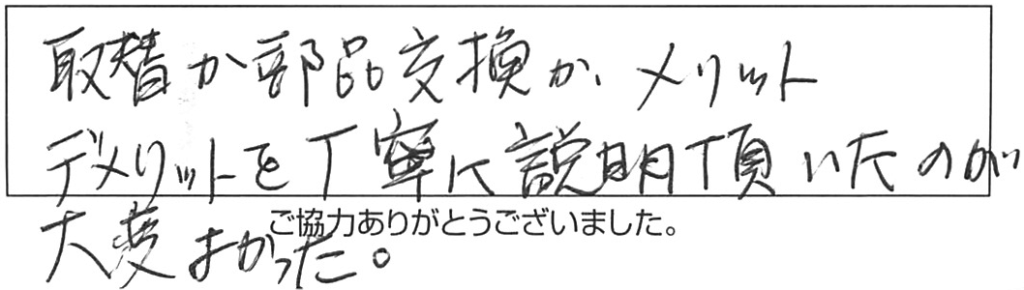 取替か部品交換か、メリット
デメリットを丁寧に説明頂いたのが
大変よかった。
ご協力ありがとうございました。